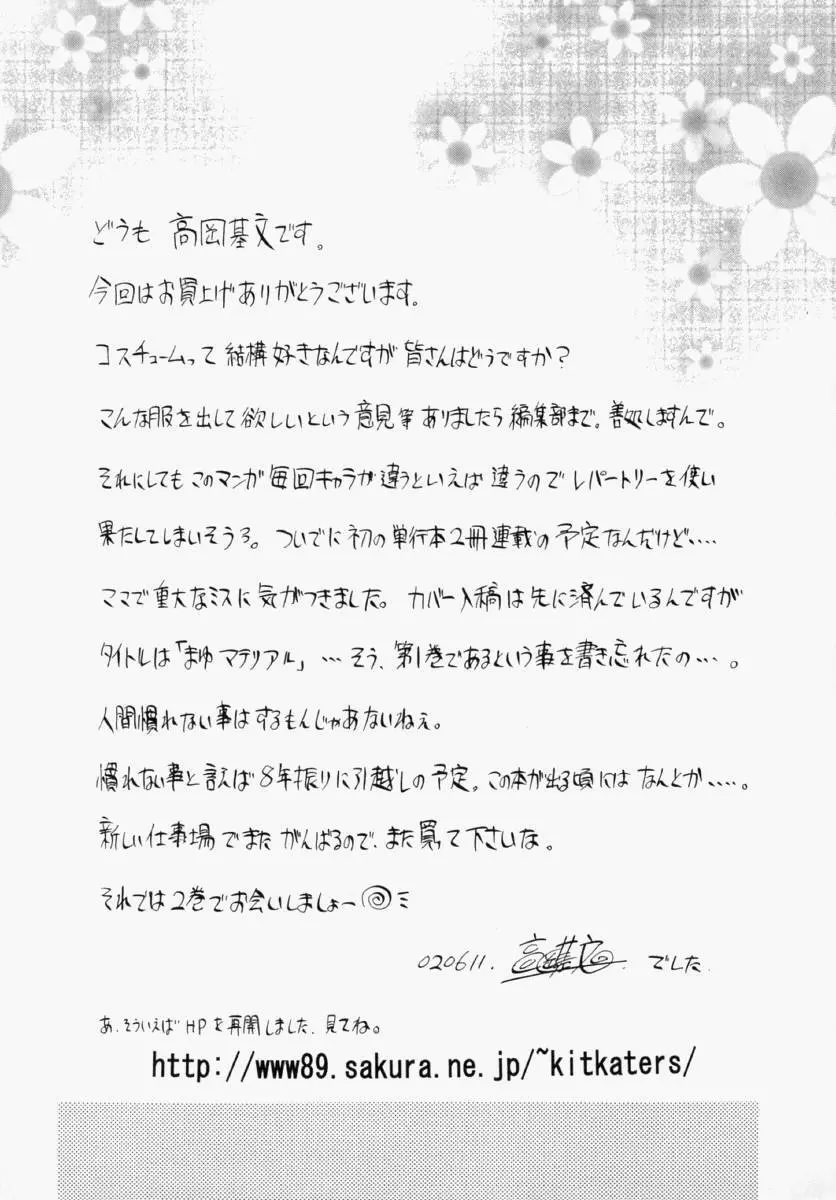 どうも 高岡基文です。
今回はお買上げありがとうございます。
コスチュームって結構好きなんですが皆さんはどうですか?
こんな服を出して欲しいという意見等ありましたら編集部まで。善処しますんで。
それにしてもこのマンガ毎回キャラが違うといえば違うのでレパートリーを使い
果たしてしまいそうろ。ついでに初の単行本2冊連載の予定なんだけど‥‥
ママで重大なミスに気がつきました。カバー入稿は先に済んでいるんですが
タイトルは「まゆマテリアル」…そう、第1巻であるという事を書き忘れたの…。
人間慣れない事はするもんじゃあないねぇ。
慣れない事と言えば8年振りに引越しの予定。この本が出る頃にはなんとか‥‥。
新しい仕事場でまたがんばるので、また買って下さいな。
それでは2巻でお会いしましょー
020611. 高岡基文 でした.
あ、そういえばHPを再開しました、見てね。
http://www89.sakura.ne.jp/~kitkaters/